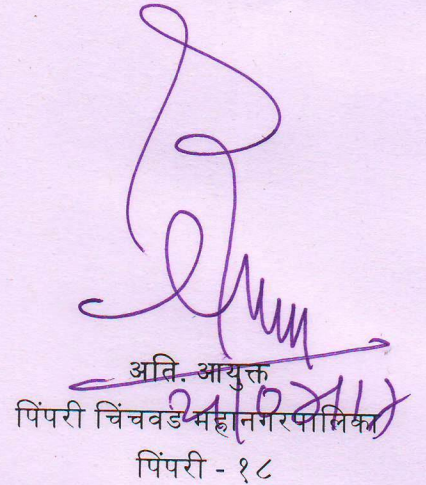 अति. आयुक्त
पिंपरी चिंचवड महानगरपालिका
पिंपरी - १८